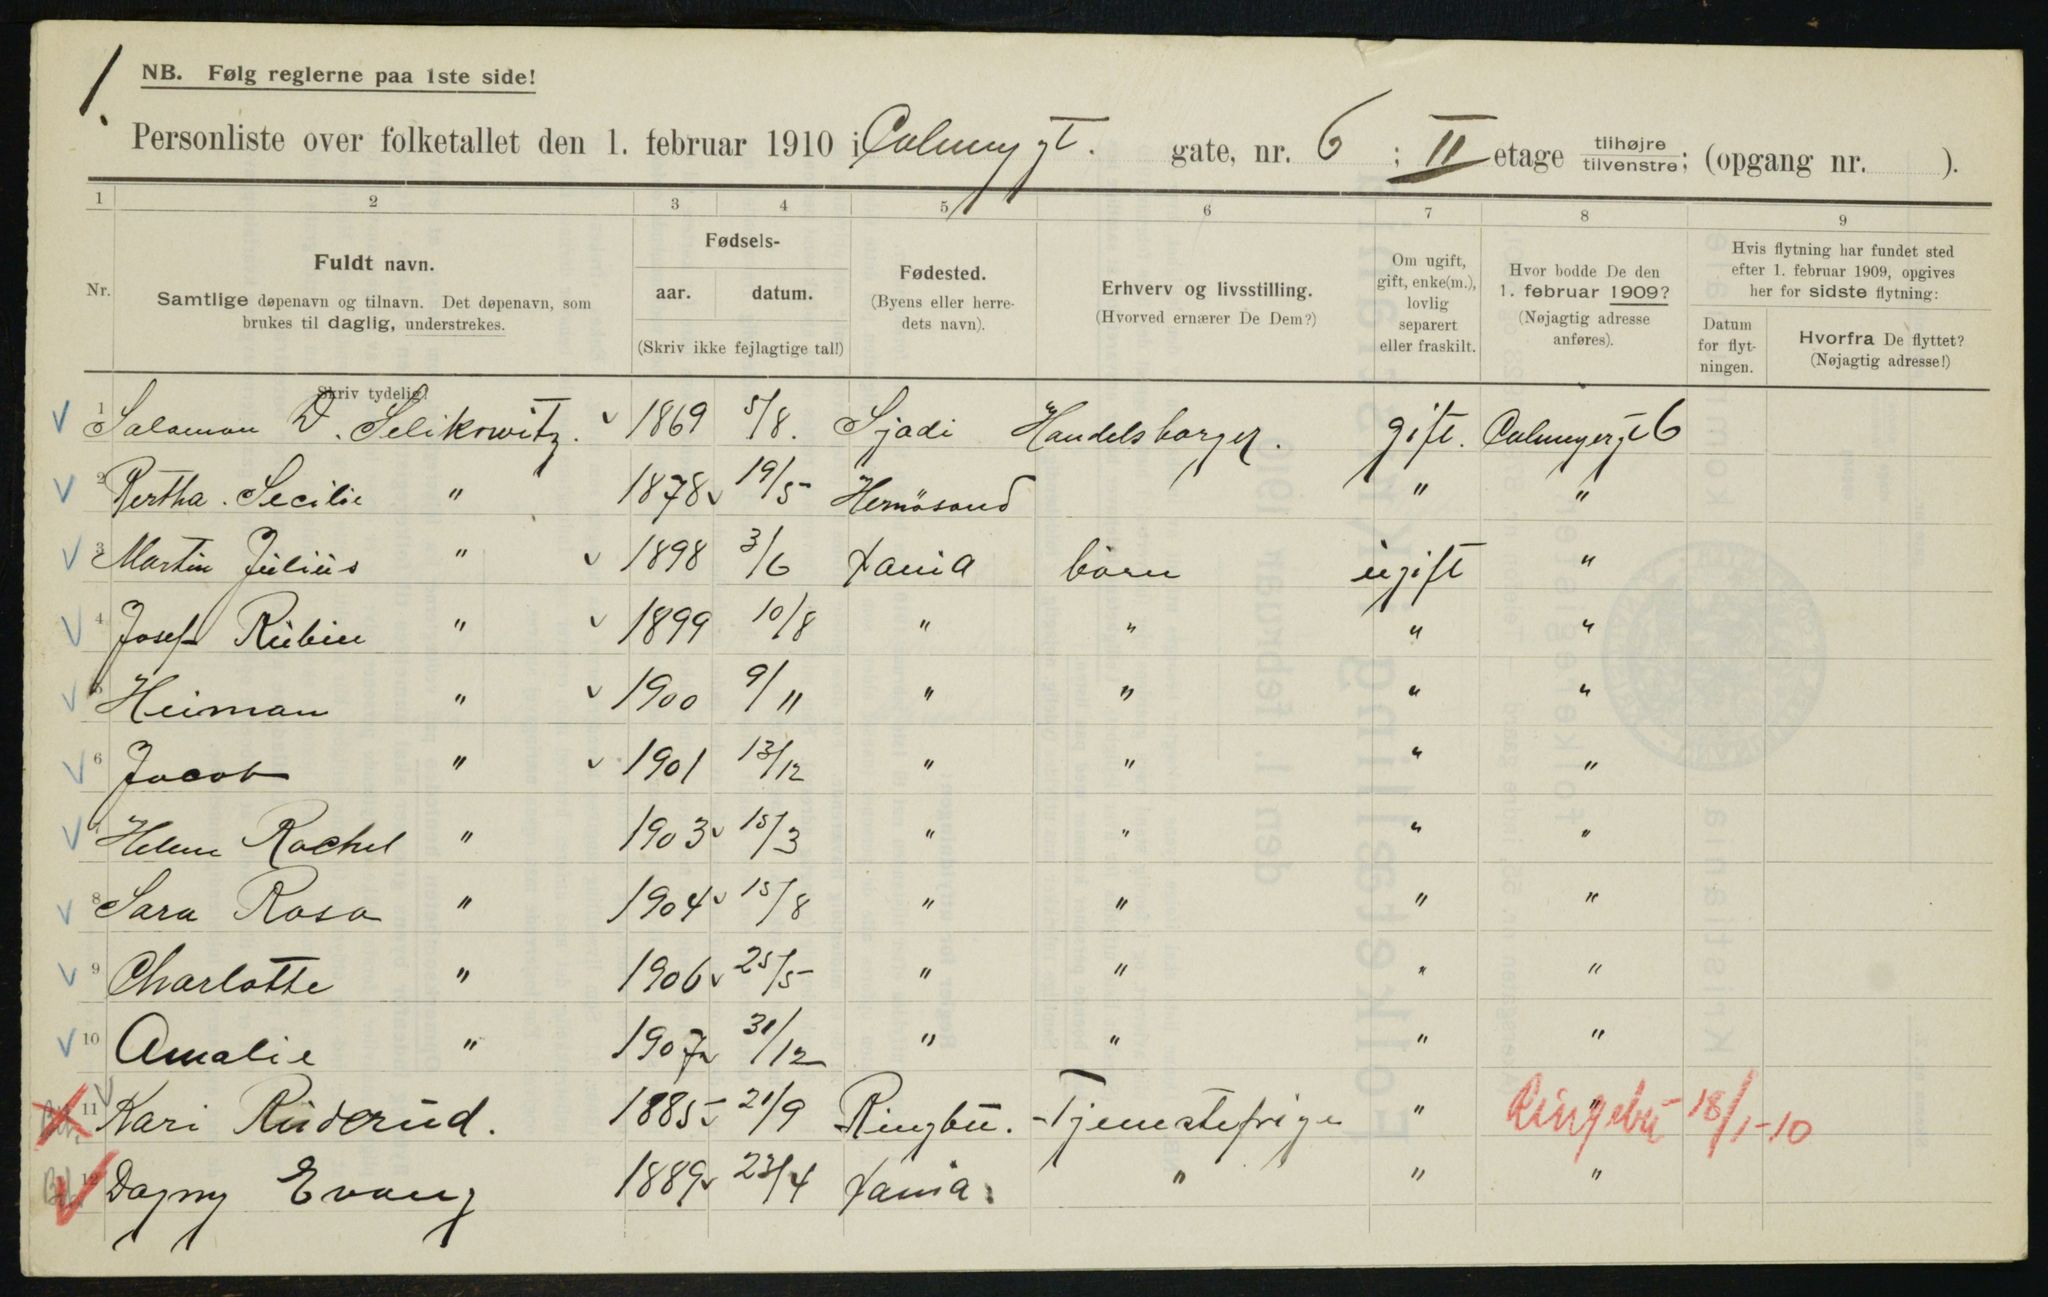 1.
NB. Følg reglerne paa 1ste side!
Personliste over folketallet den 1. februar 1910 i Calmeygt. gate, nr. 6 ; II etage tilhøjre / tilvenstre; (opgang nr. ).
1 2 3 4 5 6 7 8 9
Nr.
Fuldt navn.
Samtlige døpenavn og tilnavn. Det døpenavn, som
brukes til daglig, understrekes.
Skriv tydelig!
Fødsels-
aar. datum.
(Skriv ikke fejlagtige tal!)
Fødested.
(Byens eller herre-
dets navn).
Erhverv og livsstilling.
(Hvorved ernærer De Dem?)
Om ugift,
gift, enke(m.),
lovlig
separert
eller fraskilt.
Hvor bodde De den
1. februar 1909?
(Nøjagtig adresse
anføres).
Hvis flytning har fundet sted
efter 1. februar 1909, opgives
her for sidste flytning:
Datum
for flyt-
ningen.
Hvorfra De flyttet?
(Nøjagtig adresse!)
1 Salamon D. Selikowitz. 1869 5/8. Sjadi Handelsborger. gift. Calmeyergt 6
2 Bertha. Secilie " 1878 19/5 Hernösand " "
3 Martin Julius " 1898 3/6 Xania börn ugift "
4 Josef Rubin " 1899 10/8 " " " "
5 Heiman " 1900 9/11 " " " "
6 Jacob " 1901 13/12 " " " "
7 Helene Rachel " 1903 15/3 " " " "
8 Sara Rosa " 1904 15/8 " " " "
9 Charlotte " 1906 25/5 " " " "
10 Amalie " 1907 31/12 " " " "
11 Kari Ruderud. 1885 21/9 Ringbu. Tjenestefrige " " Ringebu 18/1-10
12 Dagny Evang 1889 23/4 Xania. " " "